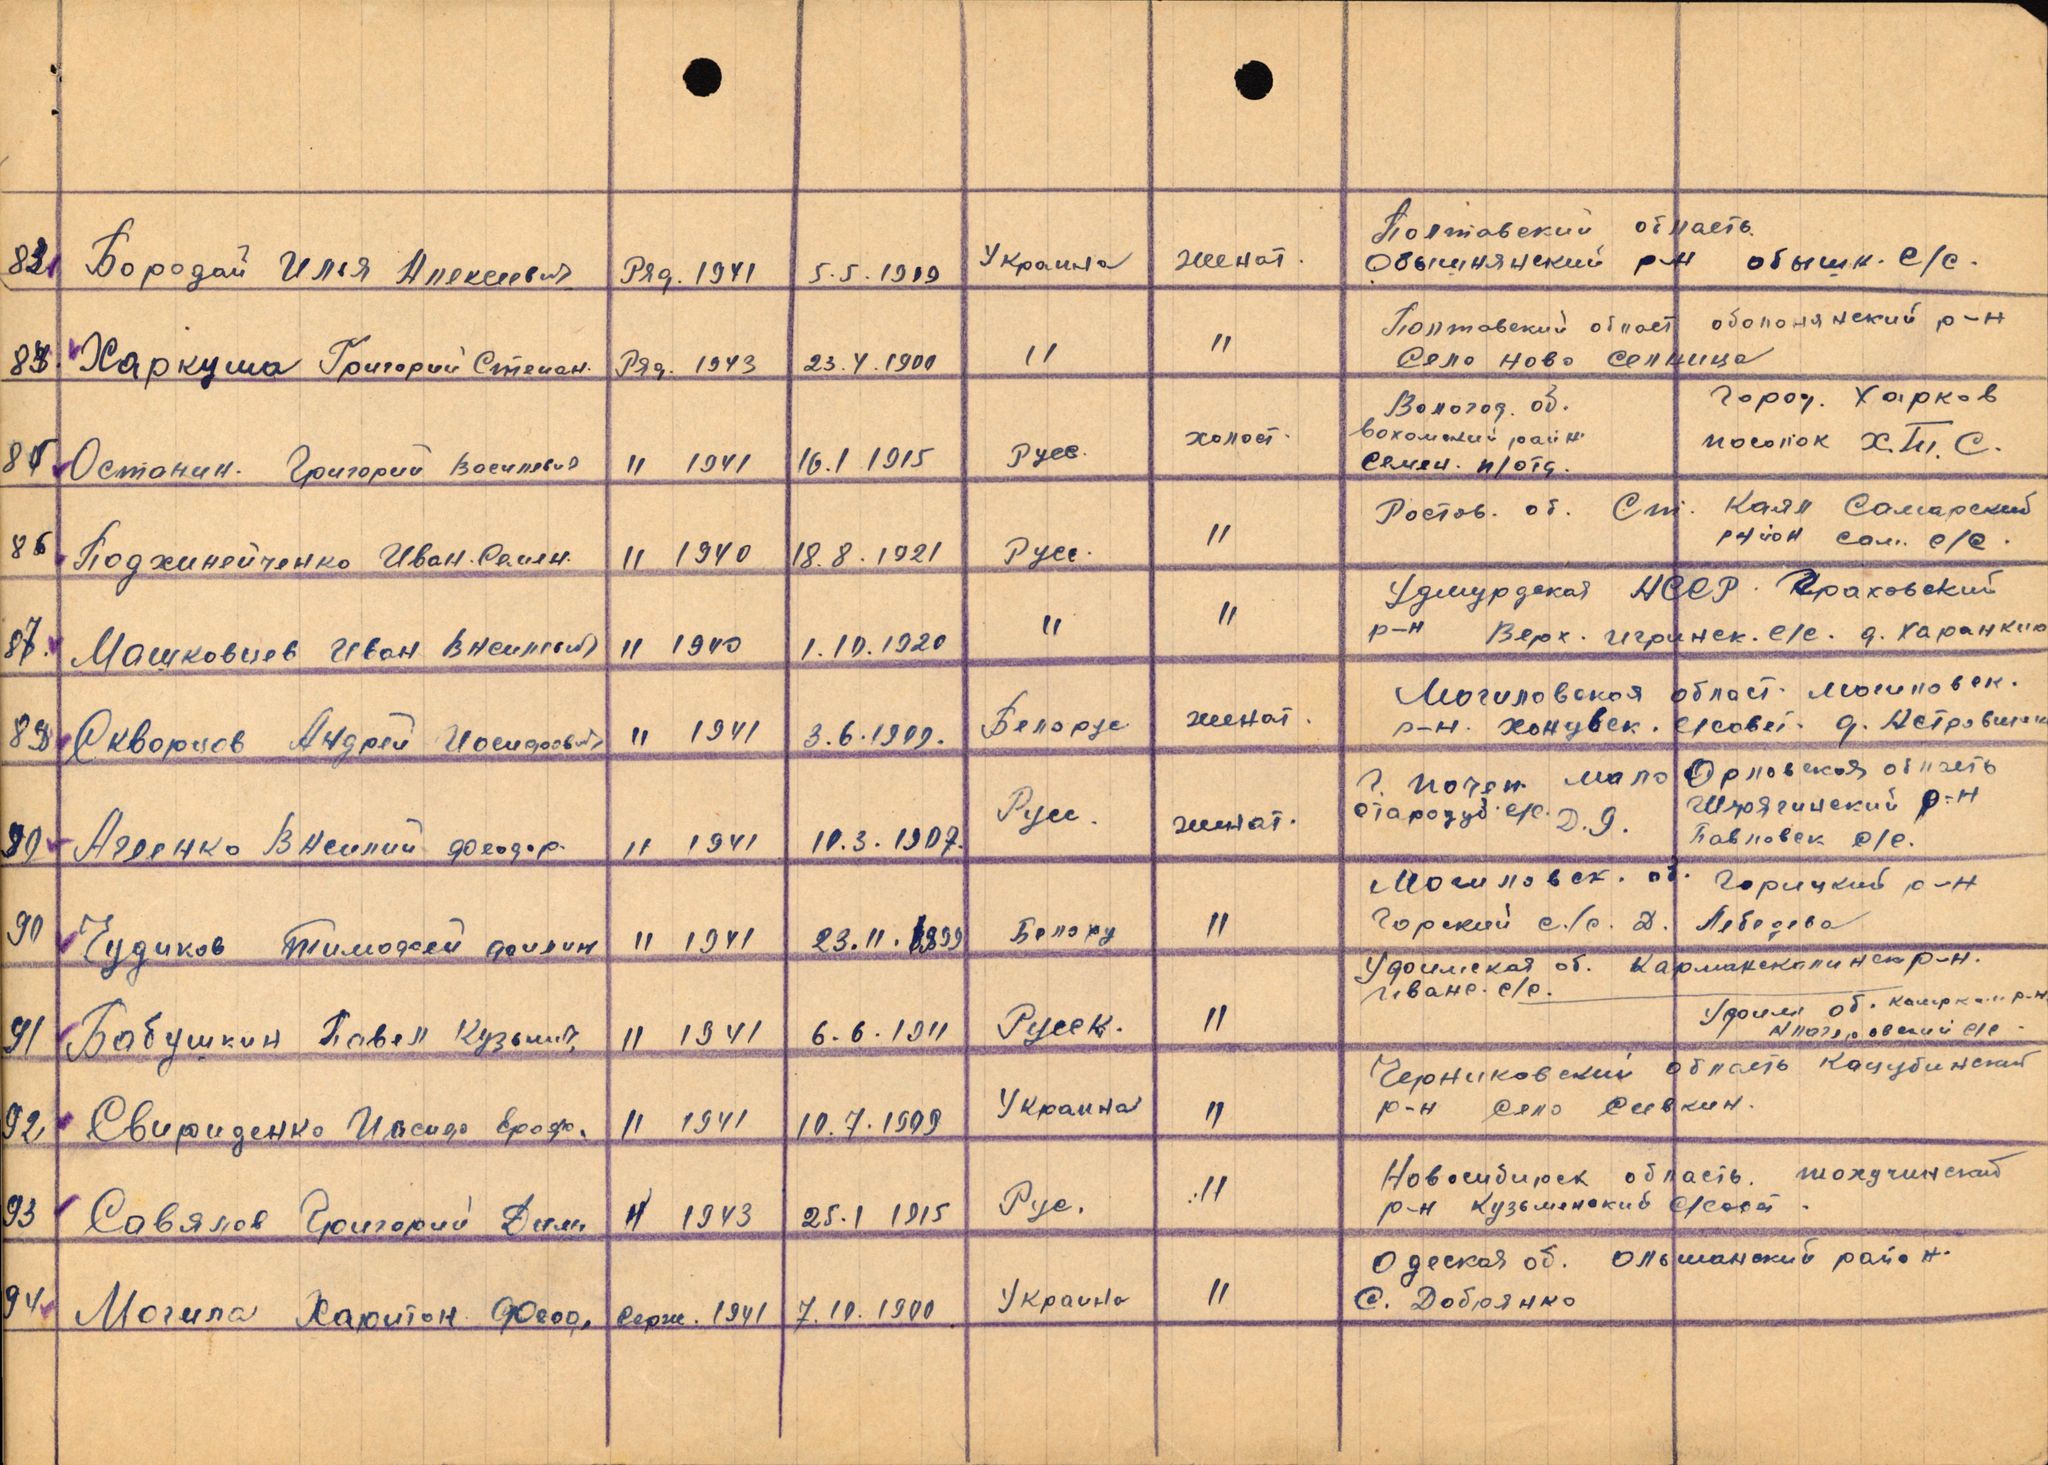 83 Бородай Илья Алексеевич Ряд. 1941 5.5.1909 Украина женат. Полтавский область
Обышнянский р-н обышн. С/с.
84. Харкуша Григорий Степан. Ряд. 1943 23.4.1900 " " Полтавский област оболонянский р-н
Село Ново Селница
85 Останин. Григорий Васильевич " 1941 16.1 1915 Русс. холост. Волог. об. Город. Харков
вохомский район посолок Х.Т.С.
Семен. п/отд.
86 Подхинейченко Иван. Семен. " 1940 18.8.1921 Русс. " Ростов. об. Ст. Каял Самарский
район сам. с/с.
87. Машковцев Иван Васильевич " 1940 1.10.1920 " " Удмурдская АССР. Граховский
р-н Верх. игринск. с/с. д.
Скворцов Андрей " 1941 3.6.1909. Белорус женат. Могиловская област. могиловск.
р-н. хонувск. с/совет. д.
Агеенко Василий Феодор. " 1941 10.3.1907. Русс. женат. Г. Почеп мало Орловская область
стародуб с/с. Д.Я. р-н
Павловск с/с.
90 Чудиков Тимофей " 1941 23.11.1899 Белору " Могиловск. об. Горицкий р-н
Горский с/с. Д. Лебедева
91 Бабушкин Павел Кузьмич, " 1941 6.6.1911 Русск. " об. р-н.
Иванс. с/с.
об. р-н
с/с.
92 Свириденко " 1941 10.7.1909 Украина " Черниковский область Качубинский
р-н село Сивкин.
93 Савялов Григорий Дим " 1943 25.1 1915 Рус. " Новосибирск область. тохучинский
р-н Кузьменский с/совет.
94 Могила Харитон Феод. серж. 1941 7.10.1900 Украина " Одеская об. Ольшанский район.
С. Добрянко